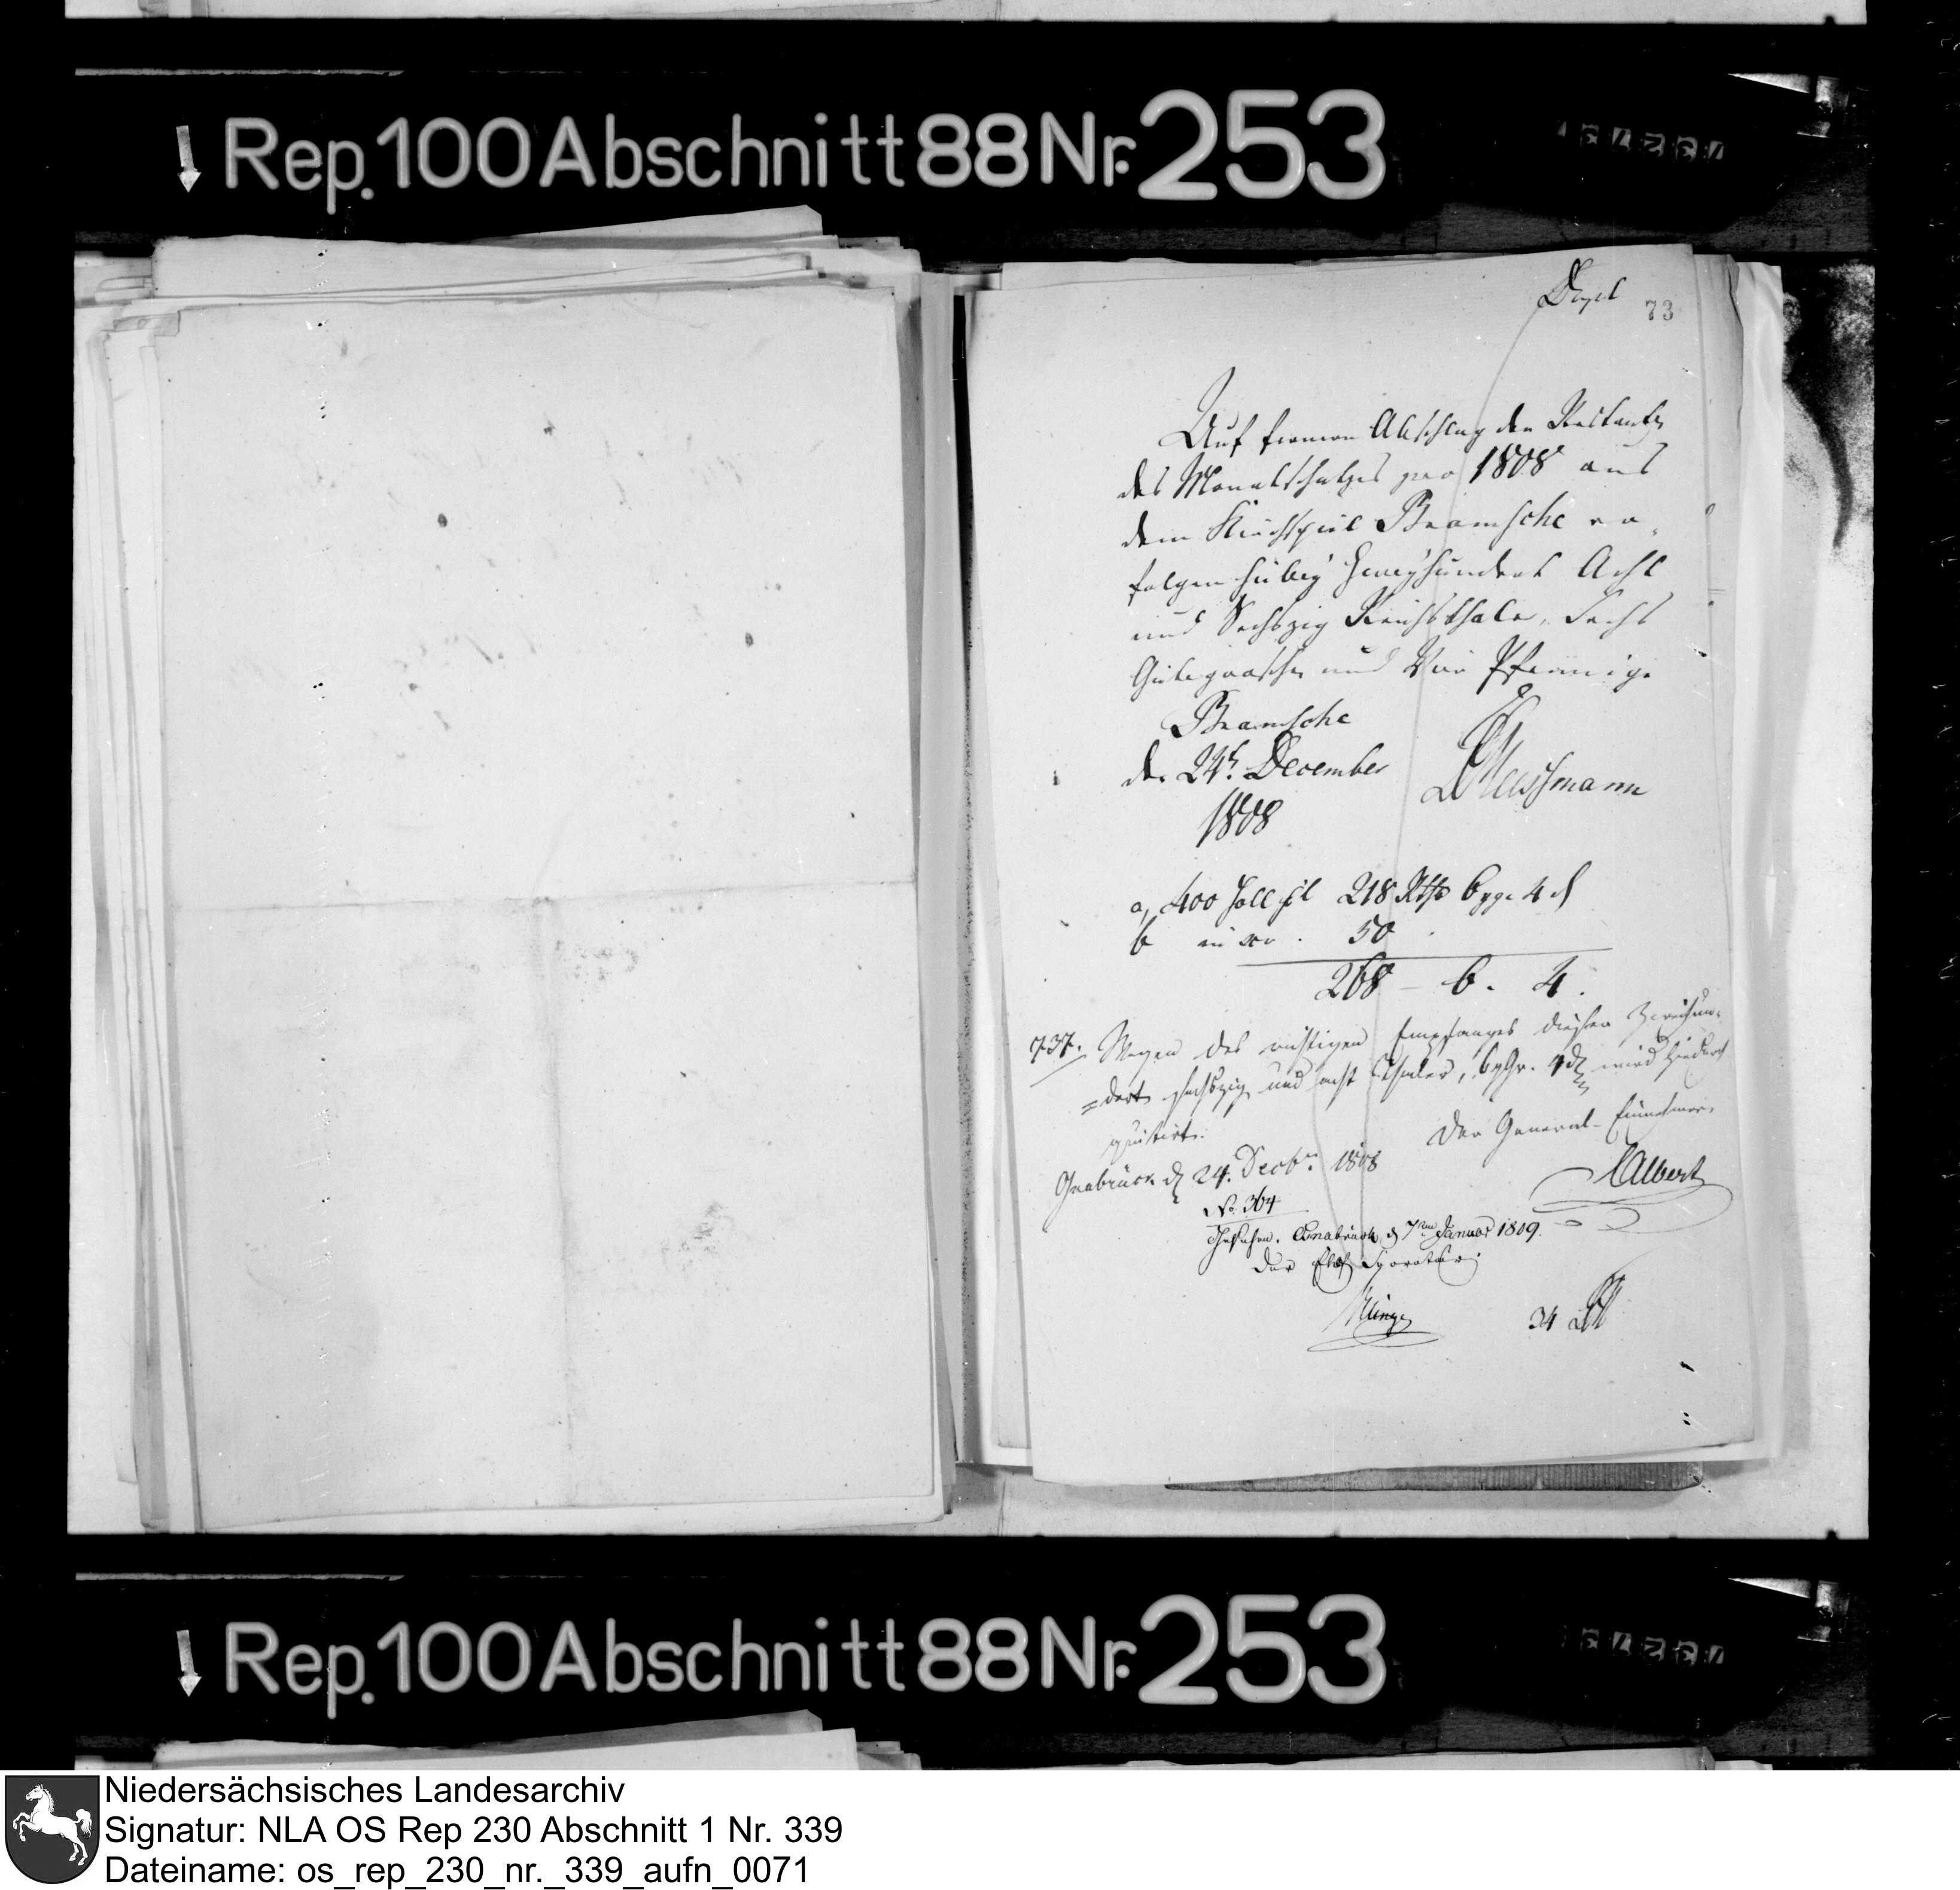 Rep. 100 Abschnitt 88 Nr. 253
73
Auf ferneren Abschlag der Restanten
des Monatschatzes pro 1808 aus
dem Kirchspiel Bramsche er-
folgen hiebey Zweyhundert Acht
und Sechszig Reichsthaler, Sechs
Gutegroschen und Vier Pfennige
Bramsche
den 24t. December
1808
a, 400 holl fl 218 Rth 6 ggr 4 d
b in 50
268 - 6. 4.
737. Wegen des richtigen Empfanges dieser Zweihun-
=dert sechszig und acht Thaler, 6 gGr. 4 d wird hiedurch
quitirt.
Osnabrück d 24. Decbr. 1808
Der General-Einnehmer
Albert
No. 364
Gesehen. Osnabrück, d 7ten Januar 1809.
Der
34
Rep. 100 Abschnitt 88 Nr. 253
Niedersächsisches Landesarchiv
Signatur: NLA OS Rep 230 Abschnitt 1 Nr. 339
Dateiname: os_rep_230_nr._339_aufn_0071